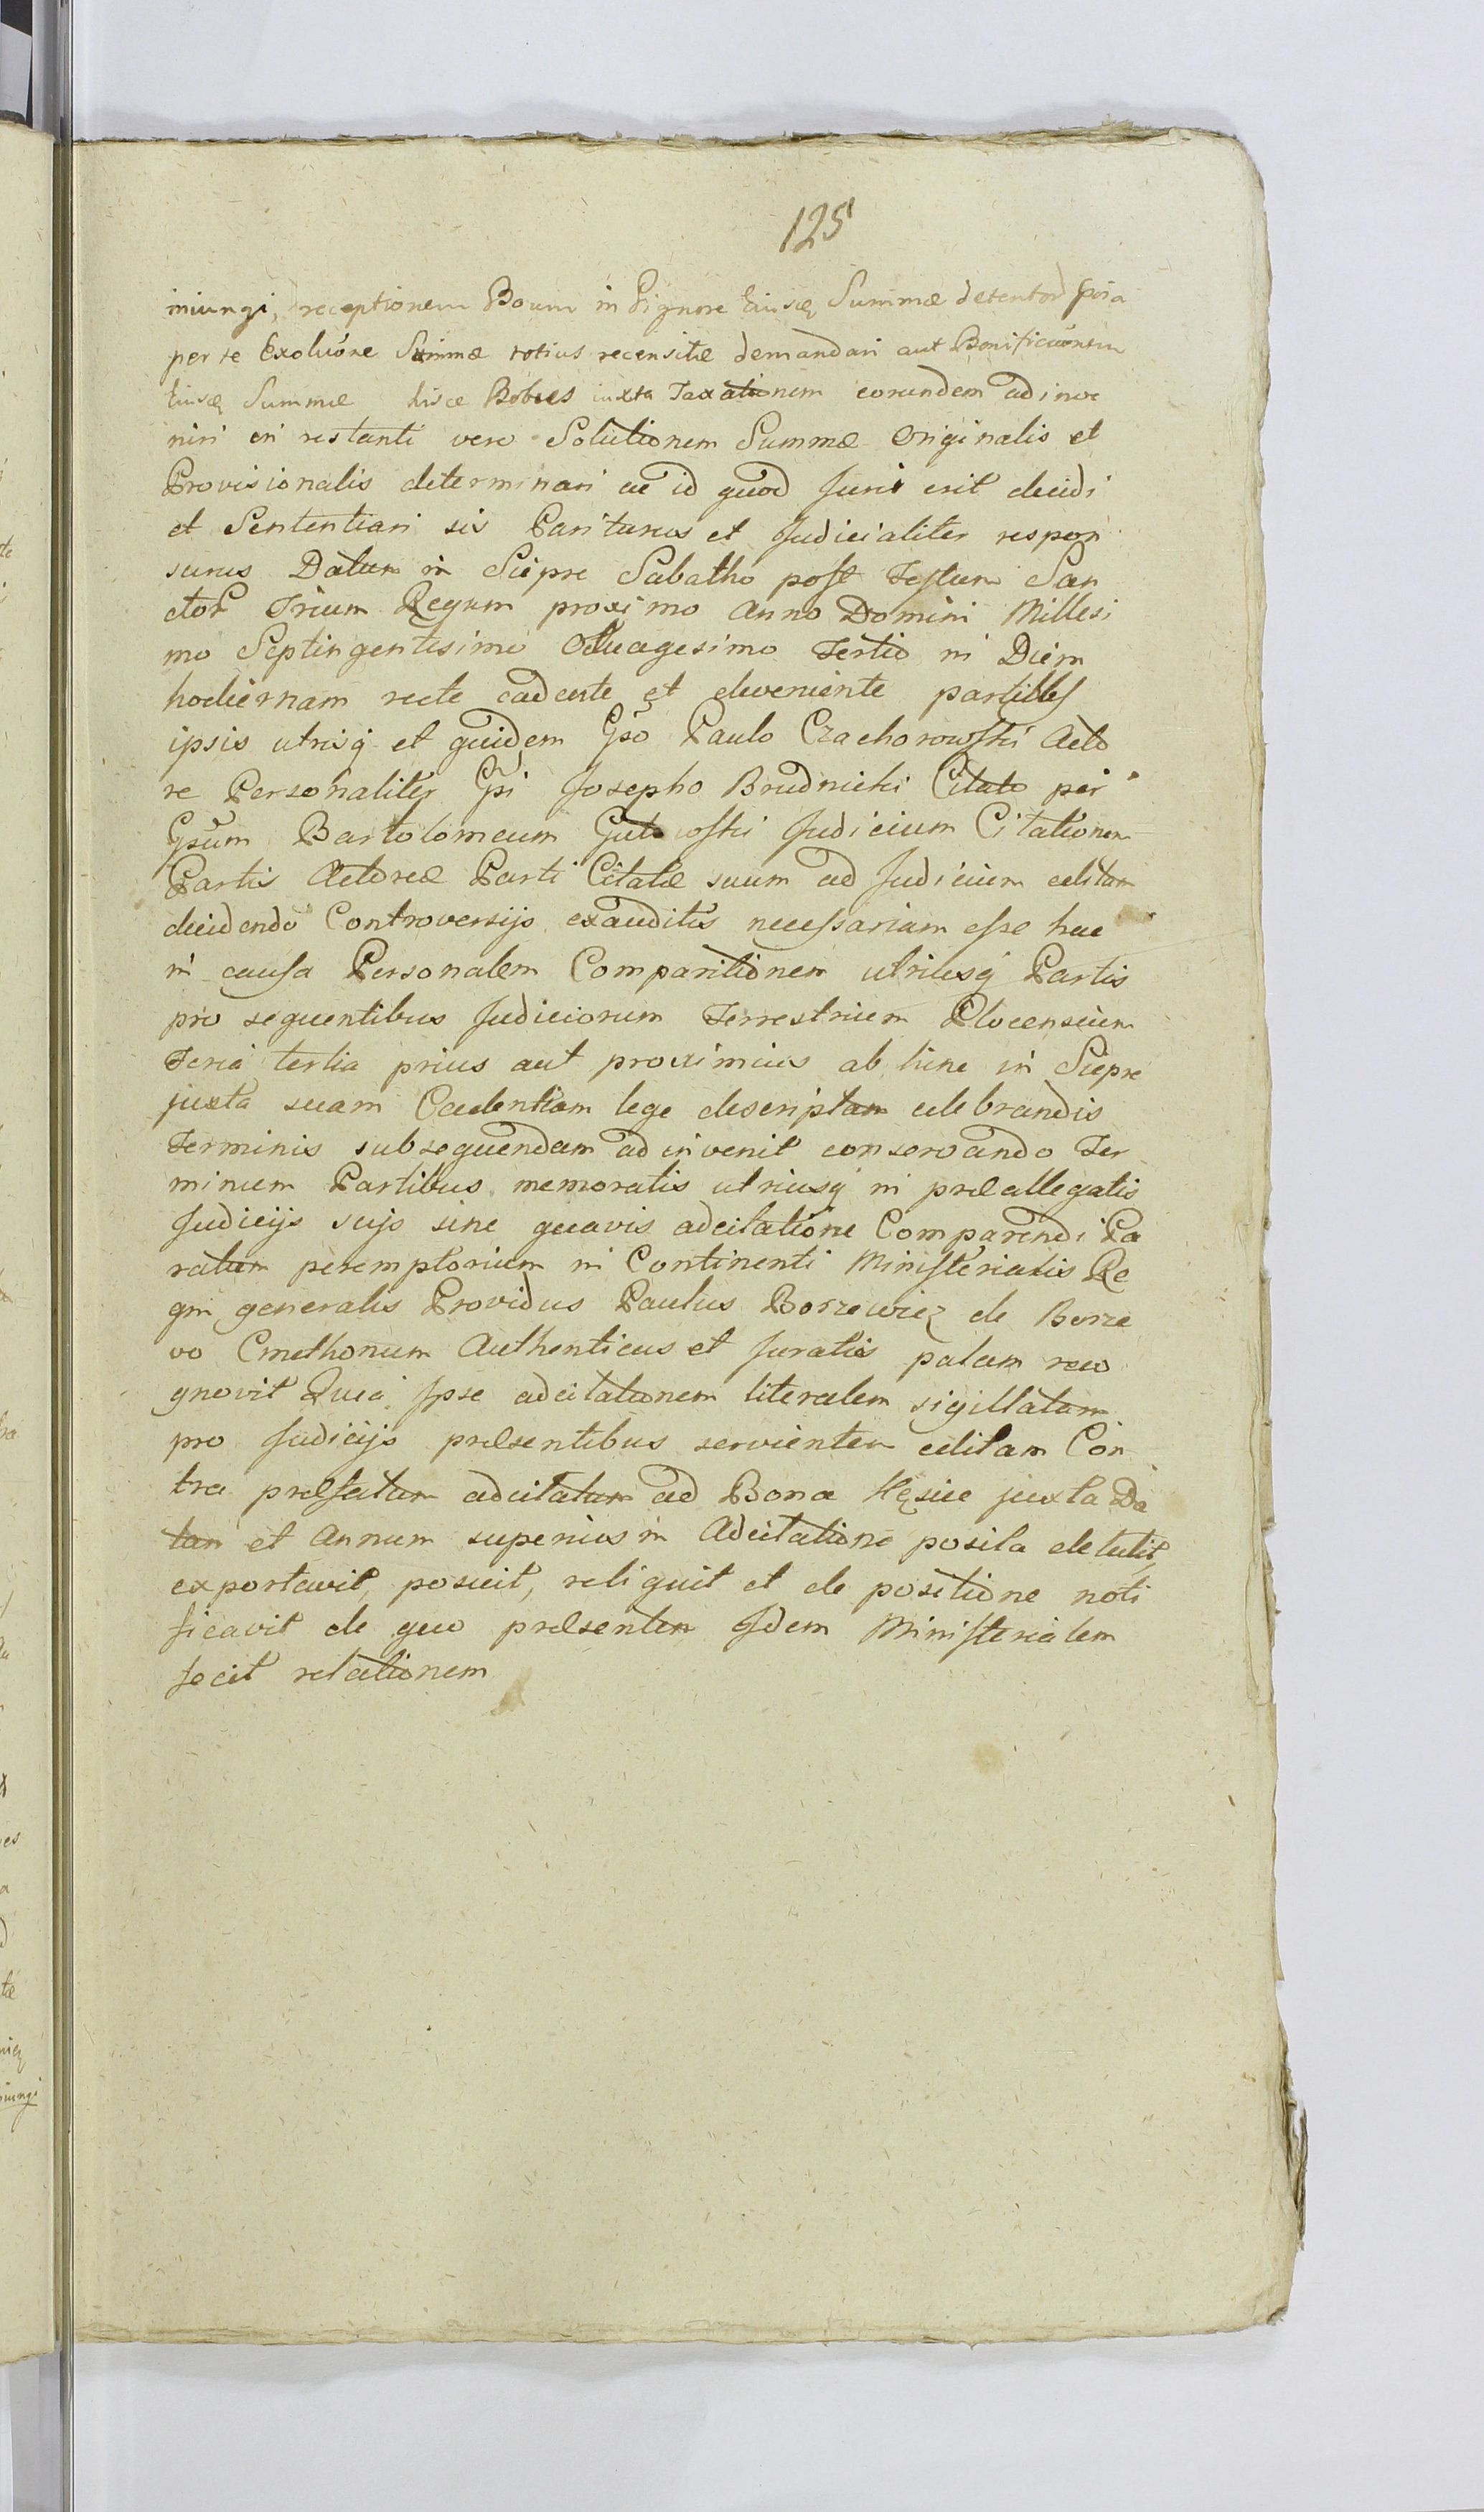 125
iniungi, receptionem Boum in Pignore Eiuscę Summæ detentor
per se Exoluõne Summæ totius recensitæ demandari aut Bonificaõnem
Eiuscę Summæ hisce Bobus iuxta Taxationem eorundem adinve
niri in restanti vero Solutionem Summæ Originalis et
Provisionalis determinari ac id quod Juris erit decidi
et Sententiari sis Pariturus et Judicialiter respon
surus Datum in Sciepre Sabatho post Festum San
ctor Trium Regum proximo Anno Domini Millesi
mo Septingentesimo Octuagesimo Tertio in Diem
hodiernam recte cadente et deveniente partibus
ipsis utrisq et quidem Gso Paulo Czachorowski Acto
re Personaliter Gsi Josepho Brudnicki Citato per
Gsum Bartolomeum Gutowski Judicium Citationem
Partis Actoreæ Parti Citatæ suum ad Judicium editam
decidendo Controversijs exauditis necessariam esse hac
in causa Personalem Comparitionem utriusq Partis
pro sequentibus Judiciorum Terrestrium Plocensium
Feria tertia prius aut proximius ab hinc in Sciepre
juxta suam Cadentiam lege descriptam celebrandis
Terminis subsequendam adinvenit conservando Ter
minum Partibus memoratis utriusq in præallegatis
Judicijs sujs sine quavis adcitatione Comparendi Pa
ratum peremptorium in Continenti Ministerialis Re
gni generalis Providus Paulus Borzewicz de Borze
vo Cmethonum Authenticus et Juratus palam reco
gnovit Quia Ipse adcitationem literalem sigillatam
pro Judicijs præsentibus servientem editam Con
tra præfatum adcitatum ad Bona Kęsice juxta Da
tam et Annum superius in Adcitatione posita detulit,
exportavit, posuit, reliquit et de positione noti
ficavit de quo præsentem Idem Ministerialem
fecit relationem